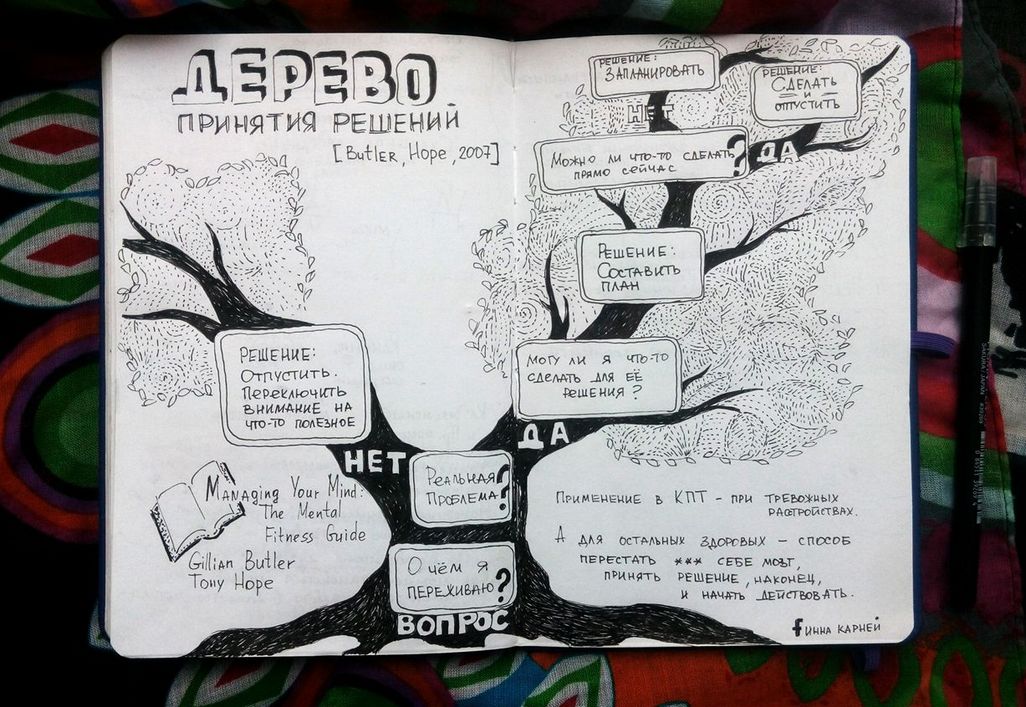 ДЕРЕВО
ПРИНЯТИЯ РЕШЕНИЙ
[Butler, Hope, 2007]
РЕШЕНИЕ:
ЗАПЛАНИРОВАТЬ
РЕШЕНИЕ:
СДЕЛАТЬ
И
ОТПУСТИТЬ
НЕТ
МОЖНО ЛИ ЧТО-ТО СДЕЛАТЬ
ПРЯМО СЕЙЧАС ?
ДА
РЕШЕНИЕ:
СОСТАВИТЬ
ПЛАН
МОГУ ЛИ Я ЧТО-ТО
СДЕЛАТЬ ДЛЯ ЕЁ
РЕШЕНИЯ ?
ДА
РЕШЕНИЕ:
ОТПУСТИТЬ.
ПЕРЕКЛЮЧИТЬ
ВНИМАНИЕ НА
ЧТО-ТО ПОЛЕЗНОЕ
НЕТ
РЕАЛЬНАЯ
ПРОБЛЕМА ?
О ЧЁМ Я
ПЕРЕЖИВАЮ ?
ВОПРОС
Managing Your Mind:
The Mental
Fitness Guide
Gillian Butler
Tony Hope
ПРИМЕНЕНИЕ В КПТ - ПРИ ТРЕВОЖНЫХ
РАСТРОЙСТВАХ.
А ДЛЯ ОСТАЛЬНЫХ ЗДОРОВЫХ - СПОСОБ
ПЕРЕСТАТЬ *** СЕБЕ МОЗГ,
ПРИНЯТЬ РЕШЕНИЕ, НАКОНЕЦ,
И НАЧАТЬ ДЕЙСТВОВАТЬ.
f ИННА КАРНЕЙ